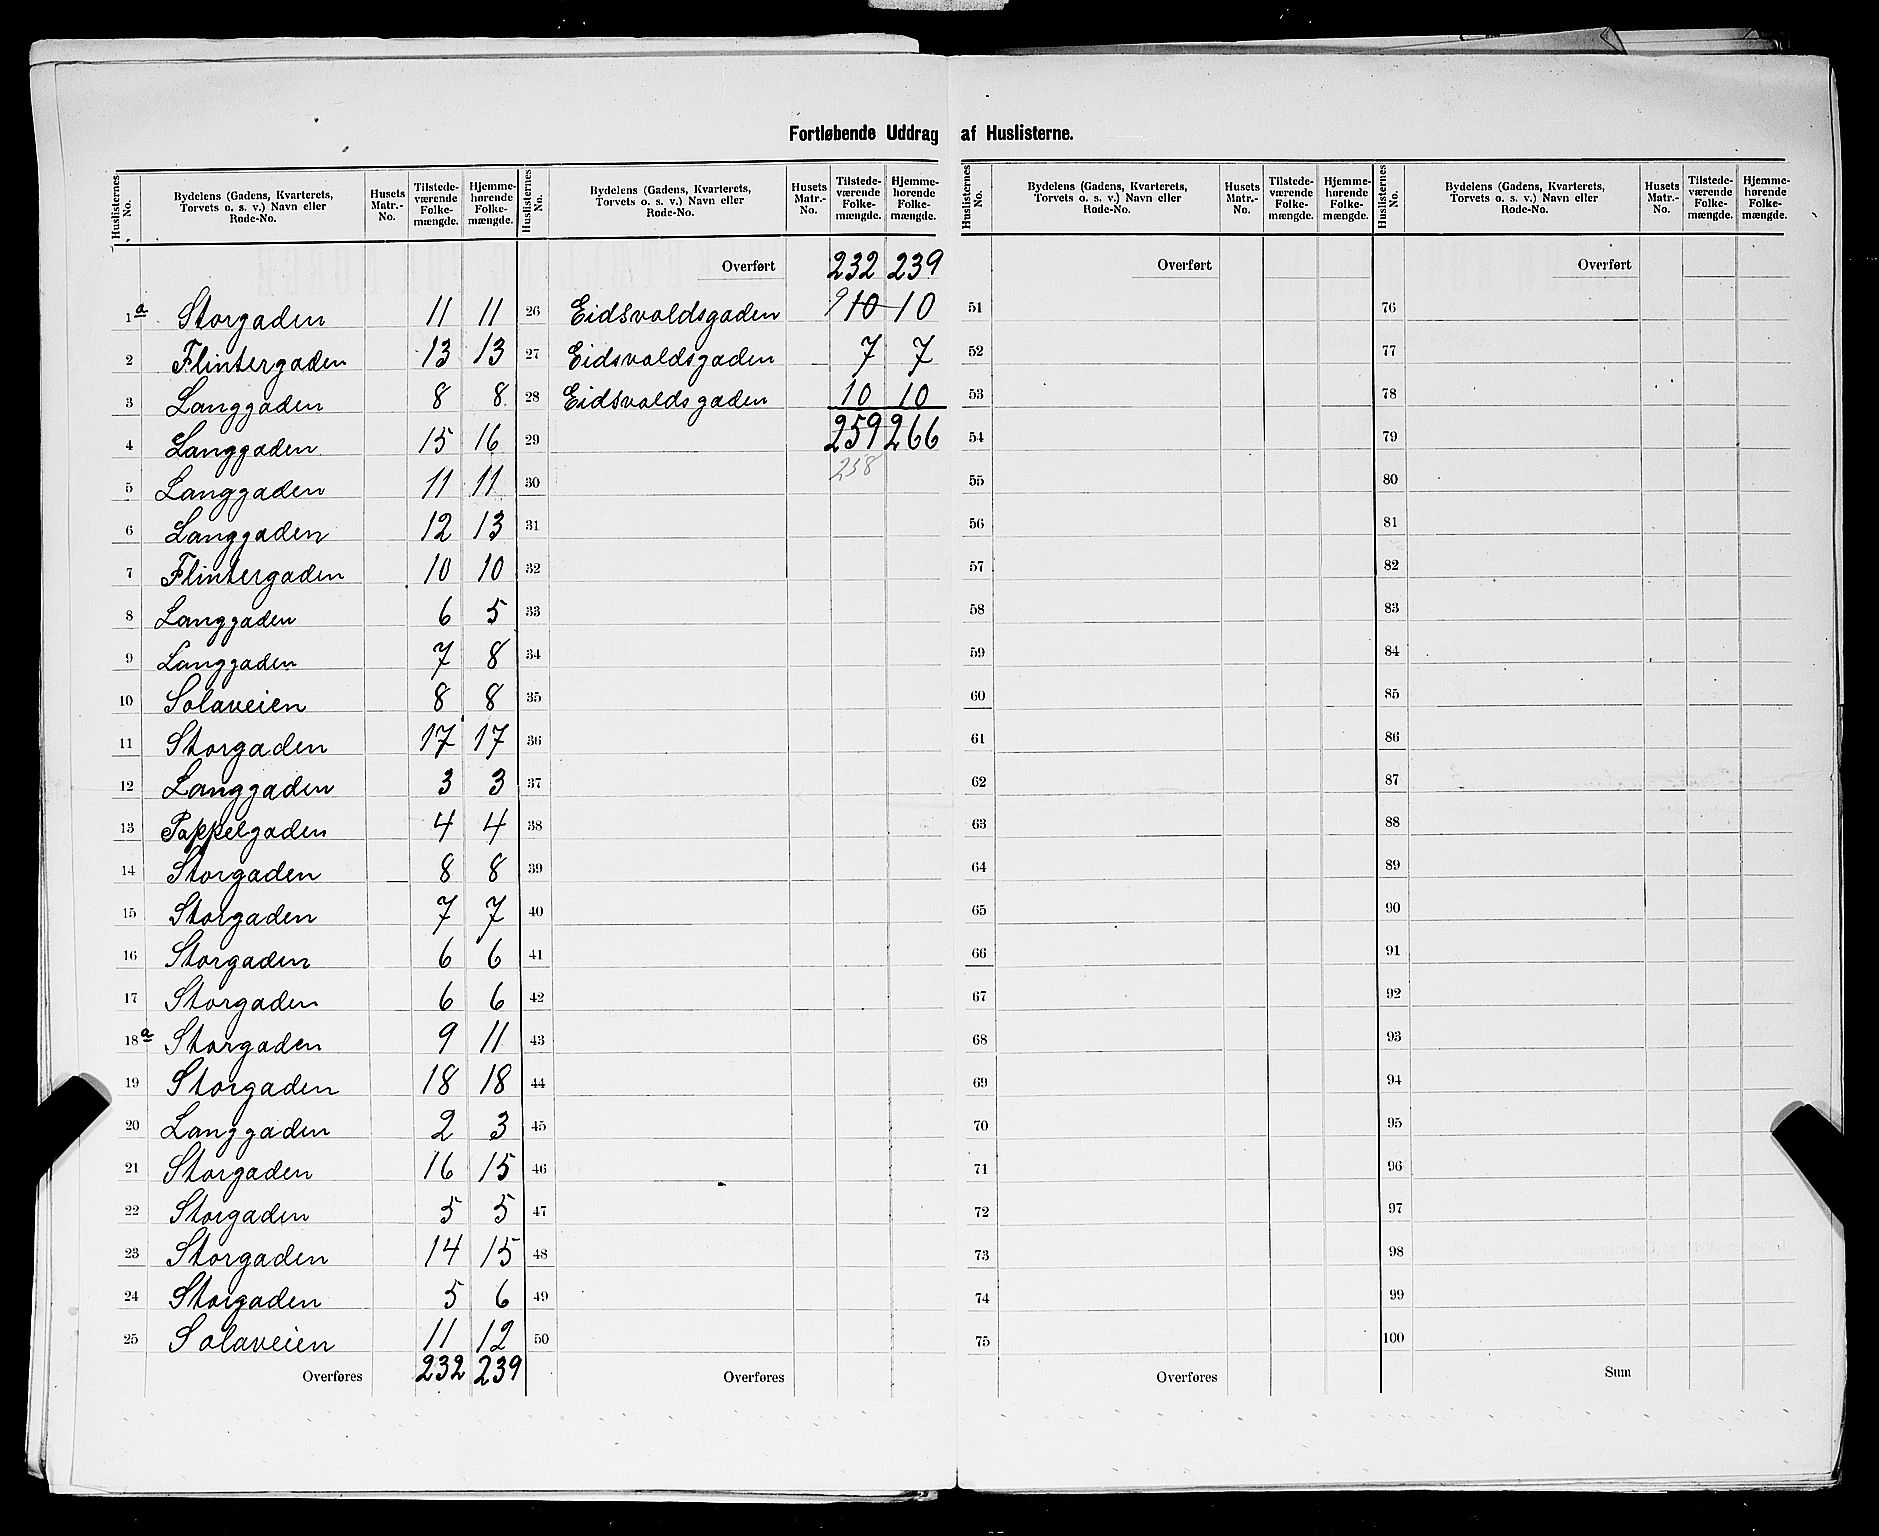 Fortløbende Uddrag af Huslisterne.
Huslisternes No. | Bydelens (Gadens, Kvarterets, Torvets o. s. v.) Navn eller Rode-No. | Husets Matr.-No. | Tilstedeværende Folkemængde. | Hjemmehørende Folkemængde.
1 a Storgaden 11 11
2 Flintergaden 13 13
3 Langgaden 8 8
4 Langgaden 15 16
5 Langgaden 11 11
6 Langgaden 12 13
7 Flintergaden 10 10
8 Langgaden 6 5
9 Langgaden 7 8
10 Solaveien 8 8
11 Storgaden 17 17
12 Langgaden 3 3
13 Poppelgaden 4 4
14 Storgaden 8 8
15 Storgaden 7 7
16 Storgaden 6 6
17 Storgaden 6 6
18 a Storgaden 9 11
19 Storgaden 18 18
20 Langgaden 2 3
21 Storgaden 16 15
22 Storgaden 5 5
23 Storgaden 14 15
24 Storgaden 5 6
25 Solaveien 11 12
Overføres 232 239
Huslisternes No. | Bydelens (Gadens, Kvarterets, Torvets o. s. v.) Navn eller Rode-No. | Husets Matr.-No. | Tilstedeværende Folkemængde. | Hjemmehørende Folkemængde.
Overført 232 239
26 Eidsvoldsgaden 9 10 10
27 Eidsvoldsgaden 7 7
28 Eidsvoldsgaden 10 10
29 259 266
258
30
31
32
33
34
35
36
37
38
39
40
41
42
43
44
45
46
47
48
49
50
Overføres
Huslisternes No. | Bydelens (Gadens, Kvarterets, Torvets o. s. v.) Navn eller Rode-No. | Husets Matr.-No. | Tilstedeværende Folkemængde. | Hjemmehørende Folkemængde.
Overført
51
52
53
54
55
56
57
58
59
60
61
62
63
64
65
66
67
68
69
70
71
72
73
74
75
Overføres
Huslisternes No. | Bydelens (Gadens, Kvarterets, Torvets o. s. v.) Navn eller Rode-No. | Husets Matr.-No. | Tilstedeværende Folkemængde. | Hjemmehørende Folkemængde.
Overført
76
77
78
79
80
81
82
83
84
85
86
87
88
89
90
91
92
93
94
95
96
97
98
99
100
Sum